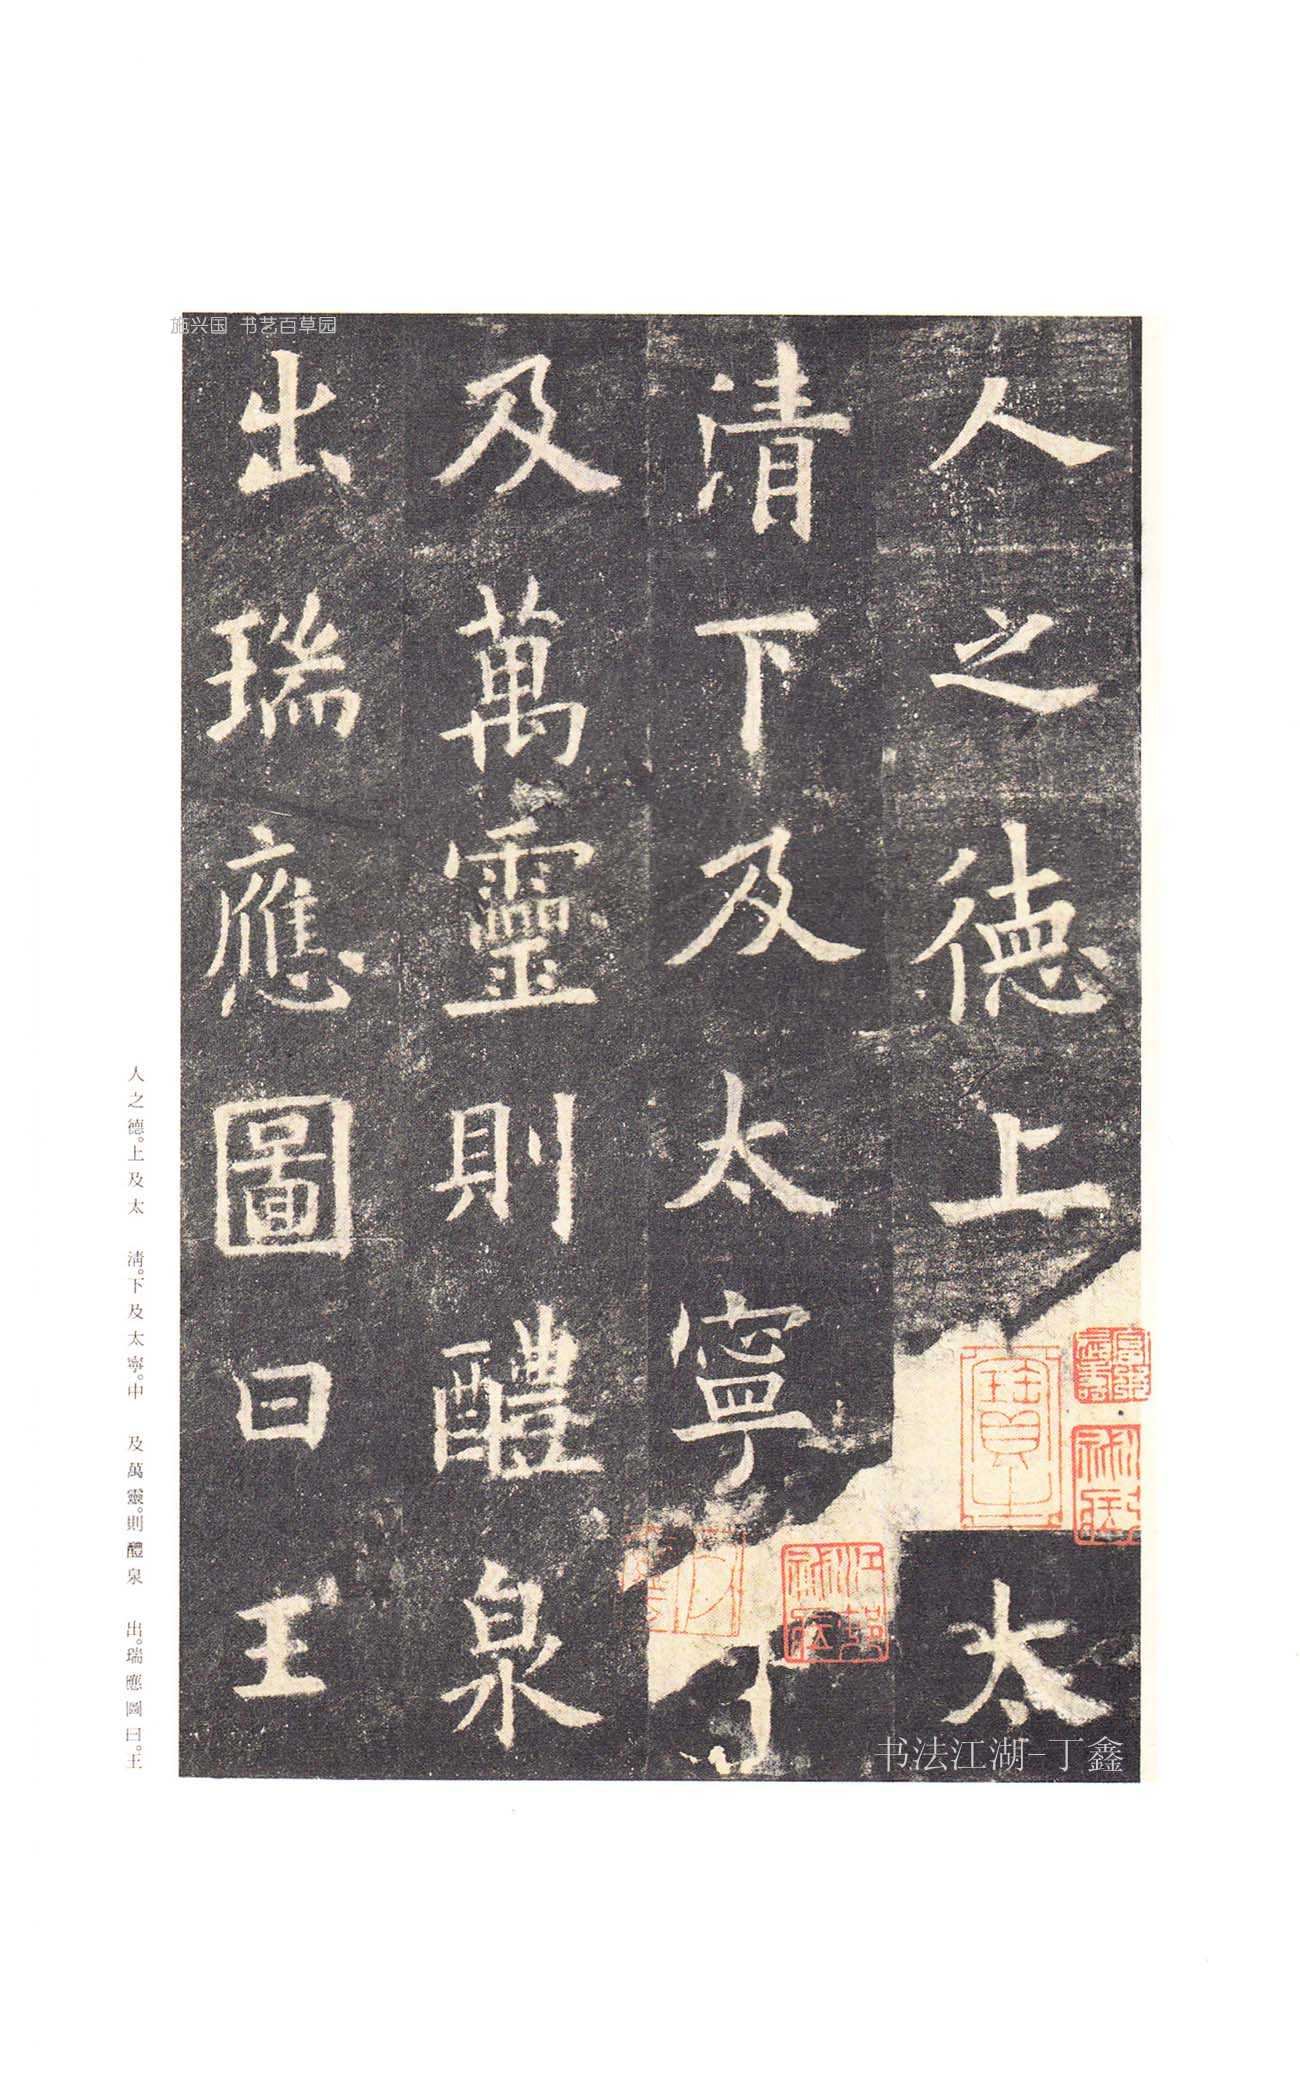 人之德上太
清下及太寧
及萬靈則醴泉
出瑞應圖曰王
人之德。上及太　清。下及太寧。中　及萬靈。則醴泉　出。瑞應圖曰。王
施兴国 书艺百草园
书法江湖-丁鑫